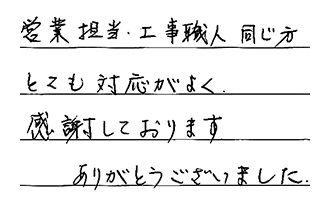 営業担当・工事職人 同じ方
とても 対応がよく.
感謝しております
ありがとうございました.